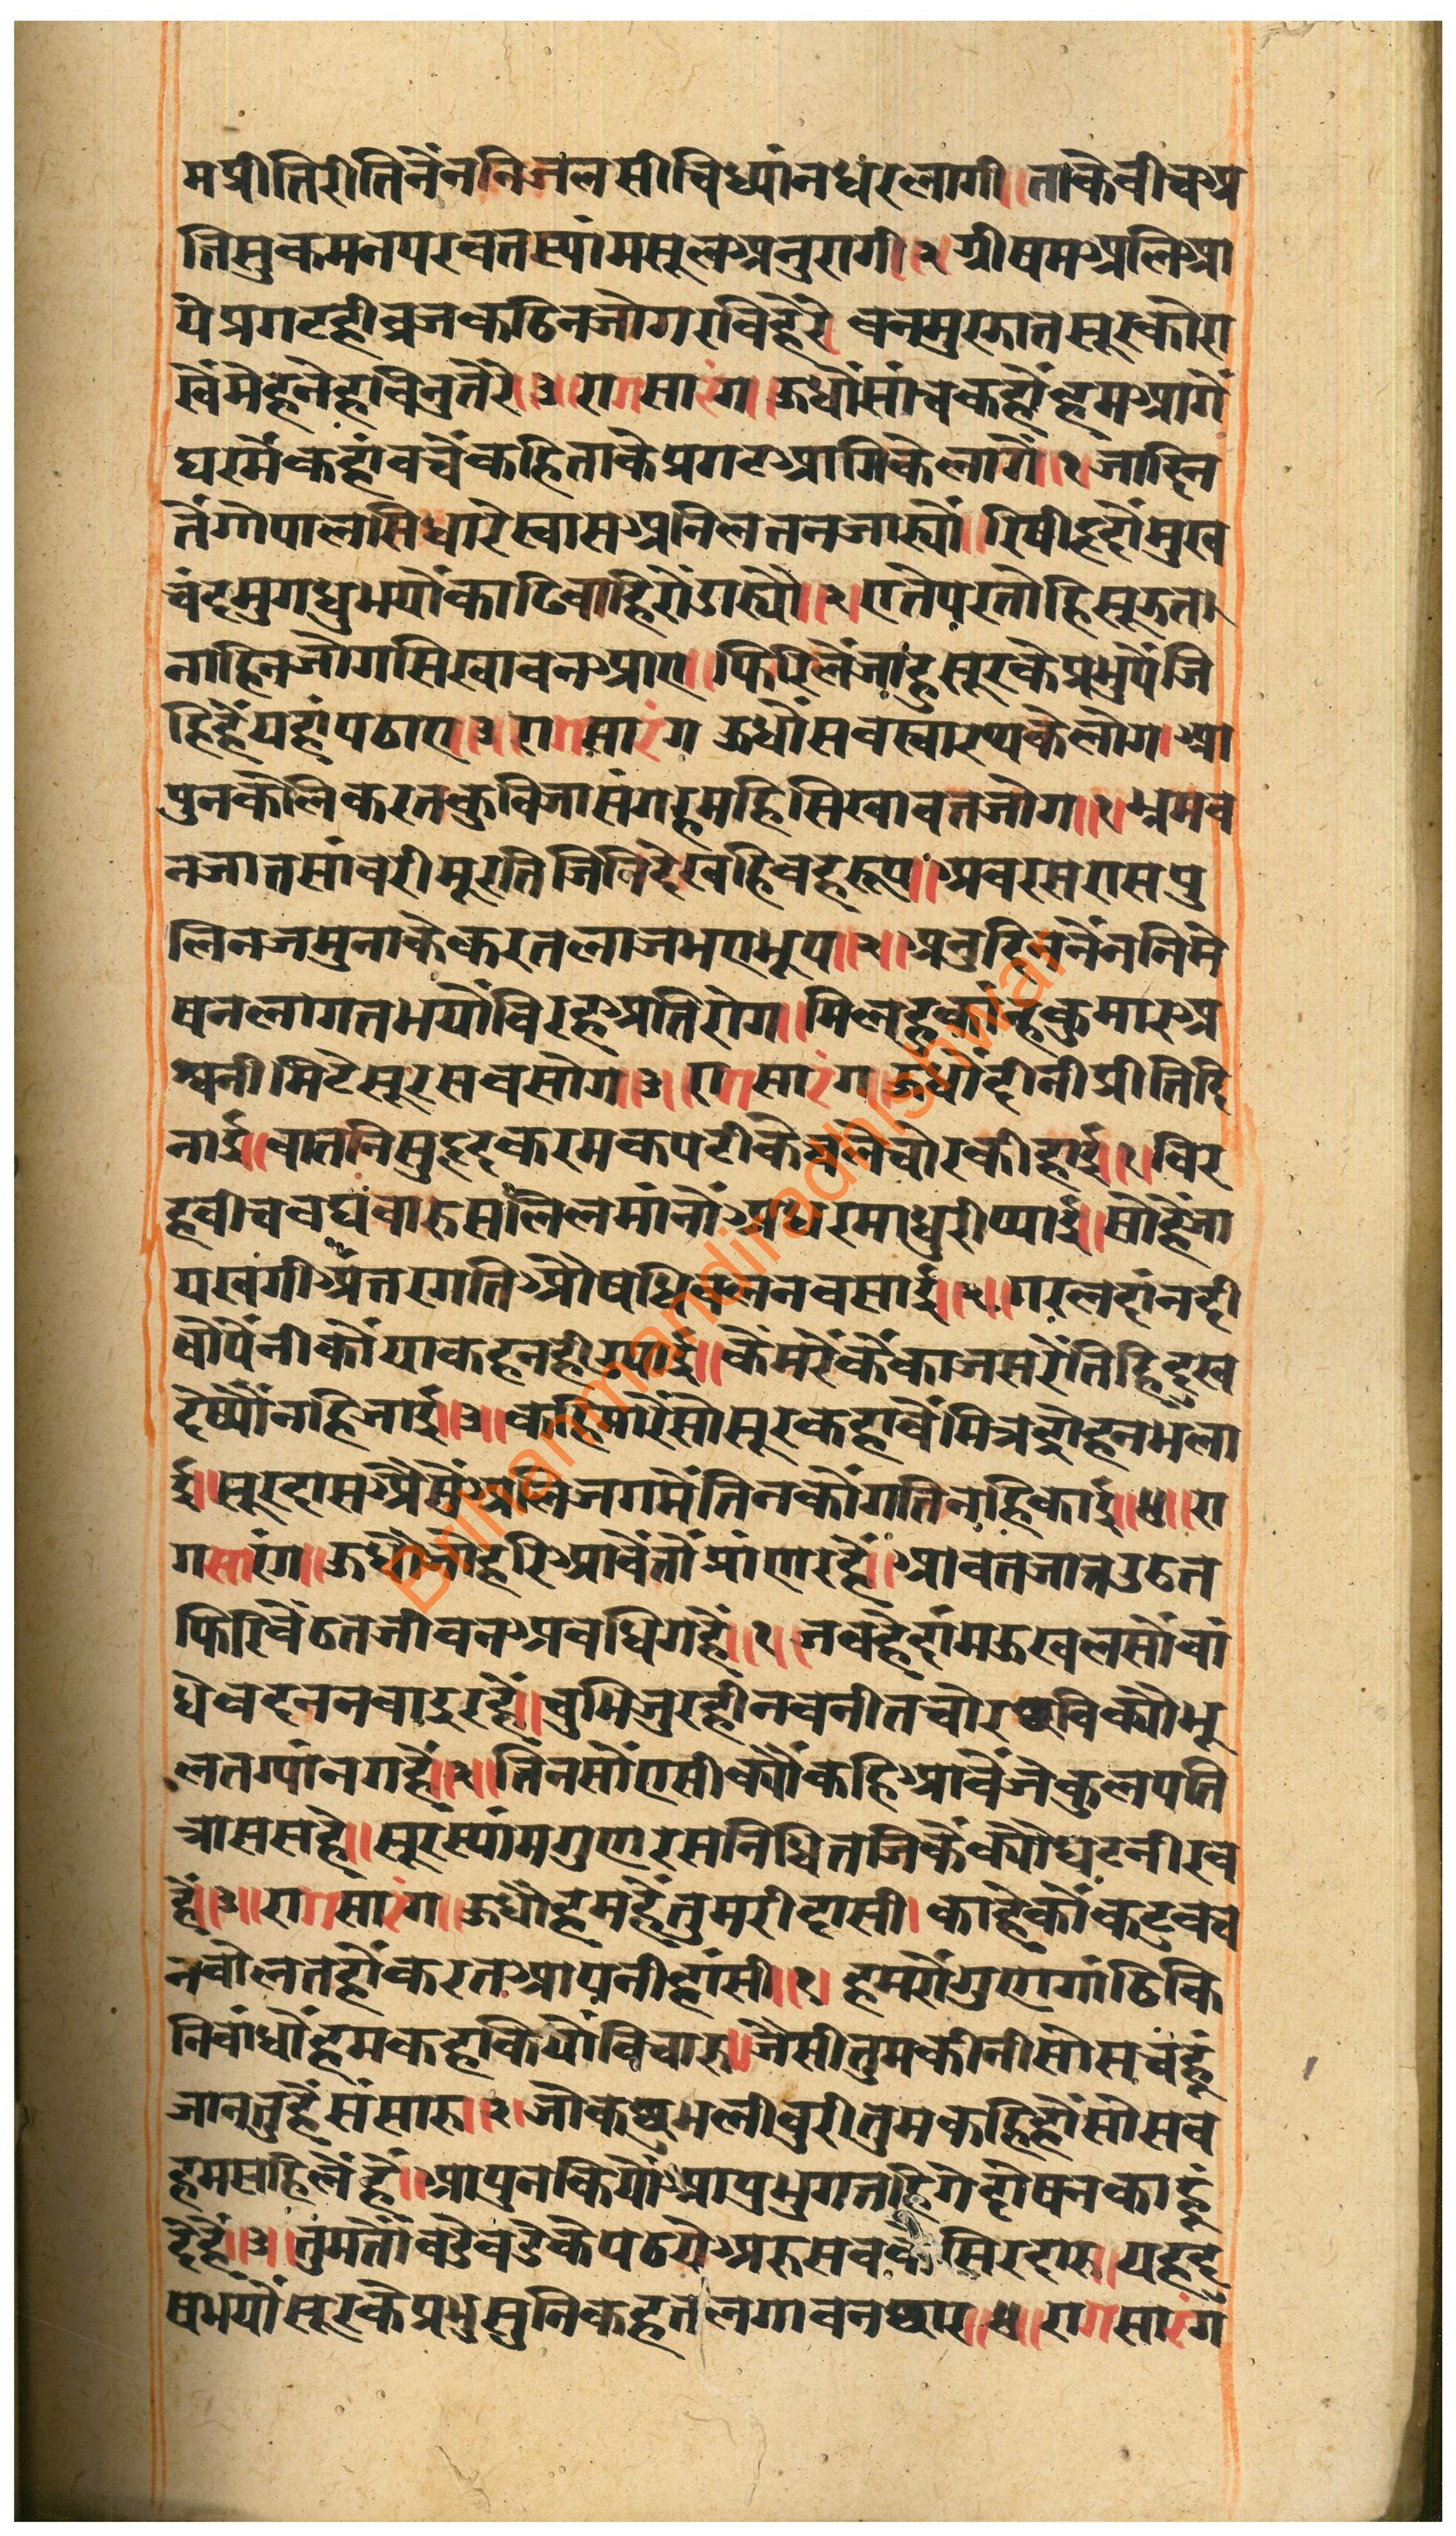 मप्रीतिरीतिनैंननिजलसीचिध्यांनधंरलागी॥ताकेवीचअ
तिसुकमनपरवतस्यांमसूलअनुरागी॥२ग्रीषमअलिआ
येप्रगटहीव्रजकठिनजोगरविहेरे वनमुरझातसूरकोरा
खैंमेहनेहविनुतेरे॥३॥रागसारंग॥ऊधौंसांचकहौंहमआगें
घरमैंकहांवचैंकहिताकेप्रगटआगिकेलागें॥१जादिन
तैंगोपालसिधारेस्वासअनिलतनजास्यौं॥रिषीहृदौंमुख
चंद्रमुगधुभयौंकाढिवाहिरौंडास्यौ॥२॥एतेपरतोहिसूझत
नाहिनजोगसिखावनआए॥फिरिलैंजांहुसूरकेप्रभुपैंजि
हिहैंयहांपठाए॥३॥रागसारंग ऊधौंसवस्वारथकेलोग।आ
पुनकेलिकरतकुविजासंगहमहिसिखावतजोग॥१॥भ्रमव
नजातसांवरीमूरतिजिनिदेखहिवहरूप॥अवरसरासपु
लिनजमुनाकेकरतलाजभएभूप॥२॥अनुदिननैंननिमे
षनलागतभयौंविरहअतिरोग॥मिलहुकांन्हकुमारअ
श्वनीमिटेसूरसवसोग॥३॥रागसारंग॥ऊधौंदीनीप्रीतिदि
नाई॥वातनिसुहृदकरमकपटीकेचलेचोरकीहाई॥१॥विर
हवीचवघंवारुसलिलमांनौंअधरमाधुरीप्याई॥सोहैंजा
यखगीअंतरगतिओषधिवलनवसाई॥२॥गरलदांनदी
यौंपैंनीकौंयाकहनहीउपाई॥कैंमरैंकैंकाजसरैंतिहिदुख
देष्यौंनहिजाई॥३॥कहिमारैंसोसूरकहावैंमित्रद्रोहनभला
ई॥सूरदासअैसैंअलिजगमैंतिनकौंगतिनहिकाई॥४॥रा
गसारंग॥ऊधौंजोहरिआवैंतौंप्रांणरहैं॥आवतजातउठत
फिरिवैंठतजीवनअवधिगहैं॥१॥जवहैदांमऊखलसौंवां
धेवदननवाइरहैं॥चुभिजुरहीनवनीतचोरछविक्यौभू
लतग्यांनगहैं॥२॥तिनसौंएसीक्यौंकहिआवैंजेकुलपति
त्राससहे॥सूरस्यांमगुणरसनिधितजिकैंक्यौघटनीरव
हैं॥३॥रागसारंग॥ऊधौहमहैंतुमरीदासी।काहेकौंकटुकव
नवोलतहौंकरतआपनीहांसी॥१॥हमरौगुणगांठिकि
निवांधौंहमकहकियौंविचारु॥जैसीतुमकीनीसोसवंहूं
जानतुहैंसंसारु॥२॥जोकछुभलीवुरीतुमकहिहौसोसव
हमसहिलैंहैं॥आपुनकियौंआपुभुगतहिगेदोषनकाहूं
देहैं॥३॥तुमतौंवडेवडेकेपठयेअरुसवकेसिरदारु॥यहदु
षभयौंसूरकेप्रभुसुनिकहतलगावनछार॥४॥रागसारंग